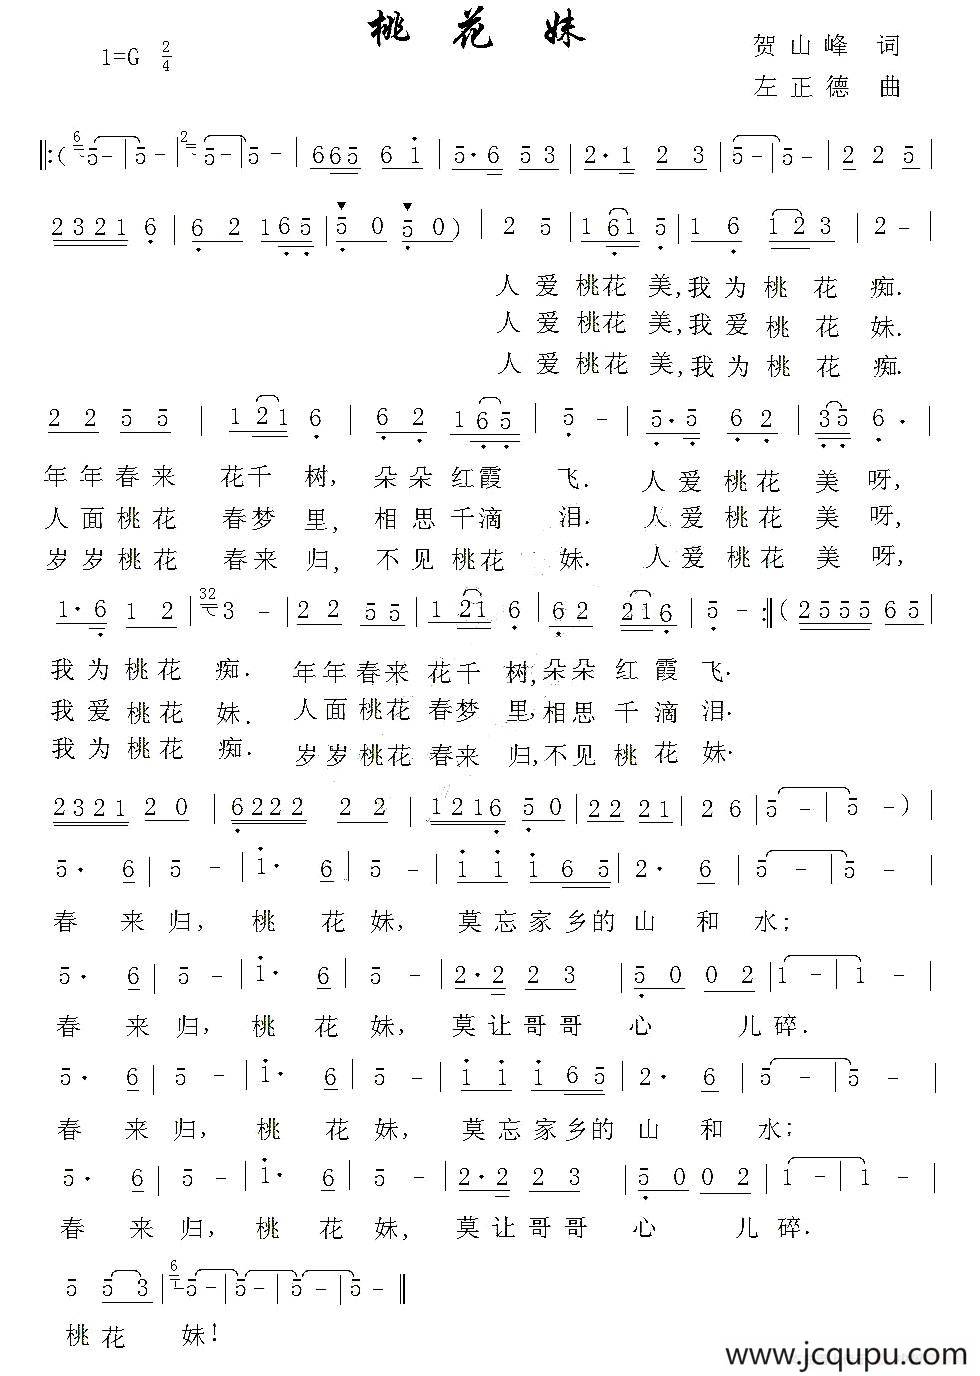 桃花妹
1=G 2/4
贺山峰 词
左正德 曲
‖:( 6 5 - | 5 - | 2 5 - | 5 - | 665 6i | 5·6 53 | 2·1 23 | 5 - | 5 - | 22 5 |
2321 6 | 62 165 | 5 0 5 0) | 2 5 | 161 5 | 1 6 123 | 2 - |
人爱桃花美,我为桃花痴.
人爱桃花美,我爱桃花妹.
人爱桃花美,我为桃花痴.
22 55 | 121 6 | 62 165 | 5 - | 5·5 62 | 35 6· |
年年春来 花千树, 朵朵红霞 飞. 人爱桃花 美呀,
人面桃花 春梦里, 相思千滴 泪. 人爱桃花 美呀,
岁岁桃花 春来归, 不见桃花 妹. 人爱桃花 美呀,
1·6 12 | 32 3 - | 22 55 | 121 6 | 62 216 | 5 - :‖( 2555 65 |
我为桃花 痴. 年年春来 花千树,朵朵红霞飞.
我爱桃花 妹. 人面桃花 春梦里,相思千滴泪.
我为桃花 痴. 岁岁桃花 春来归,不见桃花妹.
2321 20 | 6222 22 | 1216 50 | 22 21 | 26 | 5 - | 5 - ) |
5· 6 | 5 - | i· 6 | 5 - | i i i65 | 2· 6 | 5 - | 5 - |
春 来归, 桃 花妹, 莫忘家乡的山 和 水;
5· 6 | 5 - | i· 6 | 5 - | 2·2 23 | 50 02 | 1 - | 1 - |
春 来归, 桃 花妹, 莫让哥哥 心 儿碎.
5· 6 | 5 - | i· 6 | 5 - | i i i65 | 2· 6 | 5 - | 5 - |
春 来归, 桃 花妹, 莫忘家乡的山 和 水;
5· 6 | 5 - | i· 6 | 5 - | 2·2 23 | 50 02 | 1 - | 1 - |
春 来归, 桃 花妹, 莫让哥哥 心 儿碎.
5 53 | 6 5 - | 5 - | 5 - | 5 - ‖
桃花 妹!
www.jcqupu.com